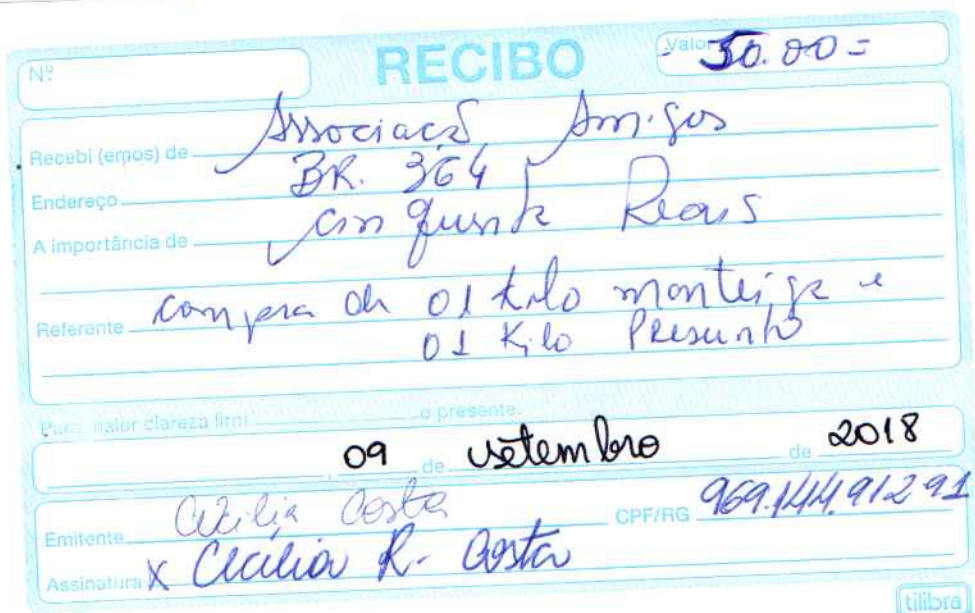 Nº RECIBO Valor 50.00=
Recebi (emos) de Associaçaõ Amigos
Endereço BR. 364
A importância de cinquenta Reais
Referente compra de 01 kilo manteiga e
01 Kilo Presunto
Para maior clareza firm o presente.
09 de setembro de 2018
Emitente Cecilia Costa CPF/RG
Assinatura X Cecilia R. Costa
tilibra